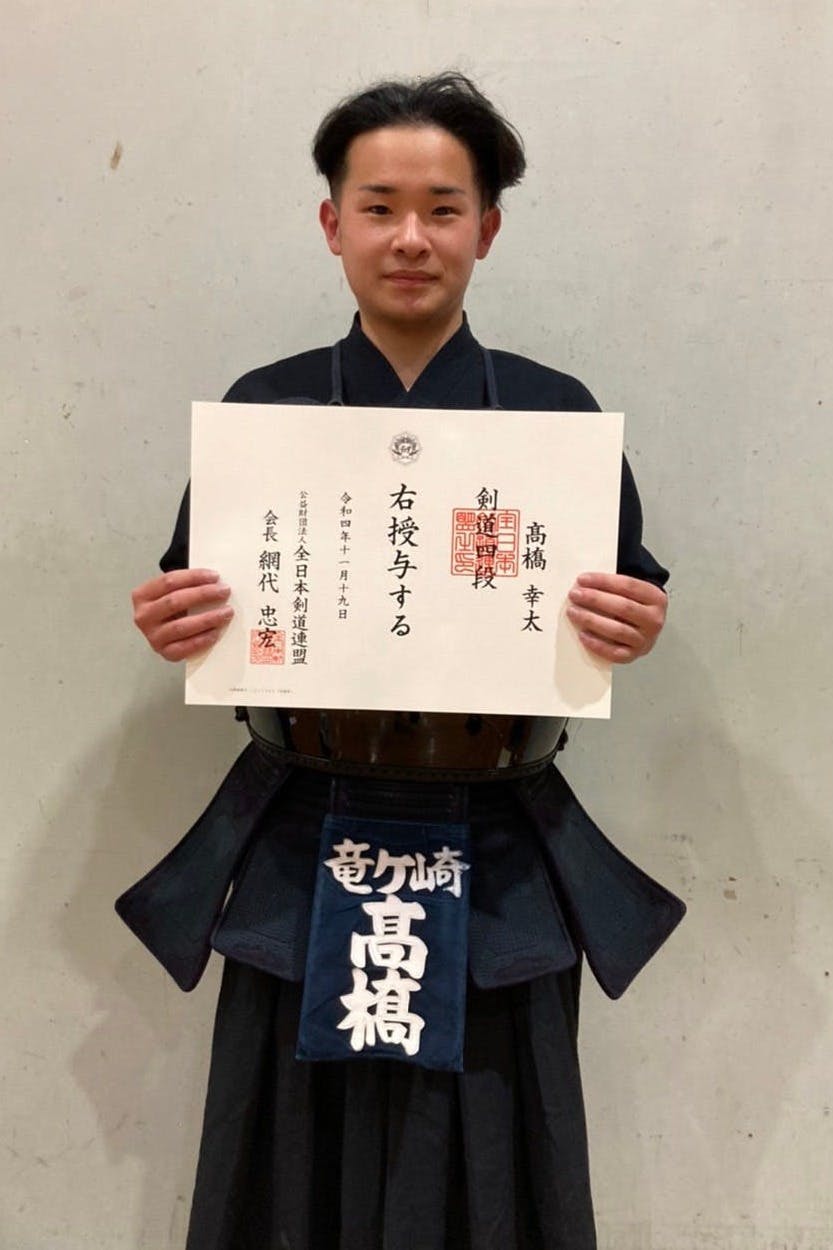 髙橋 幸太
剣道四段
右授与する
令和四年十一月十九日
公益財団法人 全日本剣道連盟
会長 網代 忠宏
竜ケ崎
髙橋